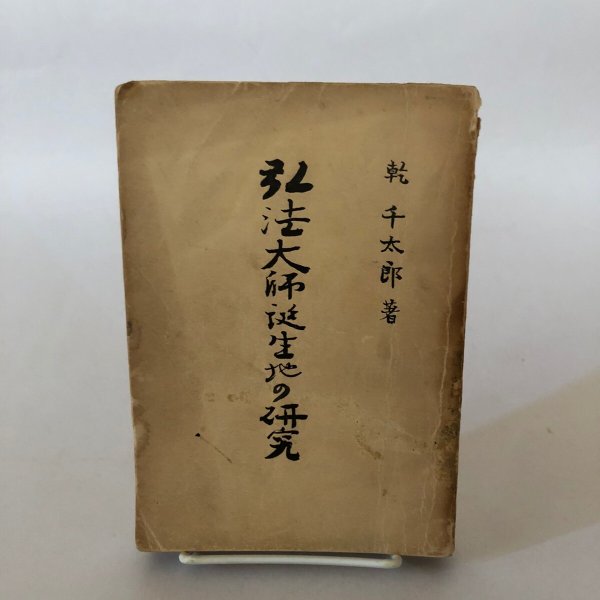 乾 千太郎 著
弘法大師誕生地の研究